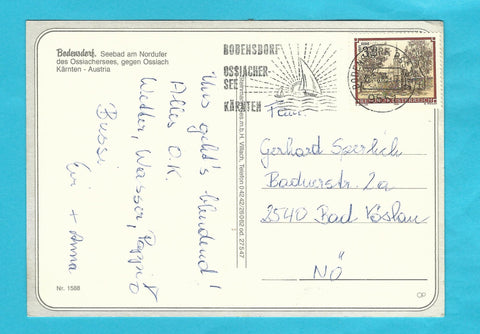 Bodensdorf. Seebad am Nordufer
des Ossiachersees, gegen Ossiach
Kärnten - Austria
Uns geht's blendend!
Alles O.K.
Wetter, Wasser,
Bussi
+ Anna
Nr. 1588
BODENSDORF
OSSIACHER-
SEE
KÄRNTEN
m.b.H. Villach, Telefon 04242/28082 od. 27547
Fam.
Gerhard Sperlich
Badnerstr. 2a
2540 Bad Vöslau
NÖ